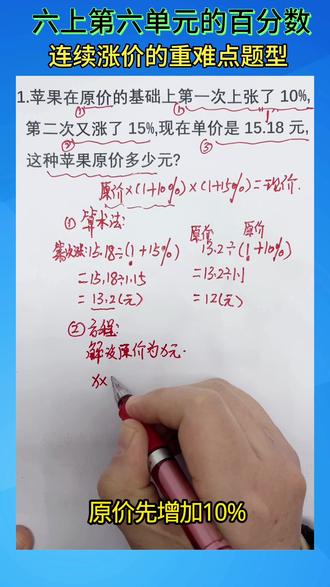 六上第六单元的百分数
连续涨价的重难点题型
1.苹果在原价的基础上第一次上张了 10%,
第二次又涨了 15%,现在单价是 15.18 元,
这种苹果原价多少元?
① ② ③
原价×(1+10%)×(1+15%)=现价.
① 算术法:
第一次:15.18÷(1+15%)
=15.18÷1.15
=13.2(元)
原价 原价
13.2÷(1+10%)
=13.2÷1.1
=12(元)
② 方程:
解:设原价为x元.
x×
原价先增加10%